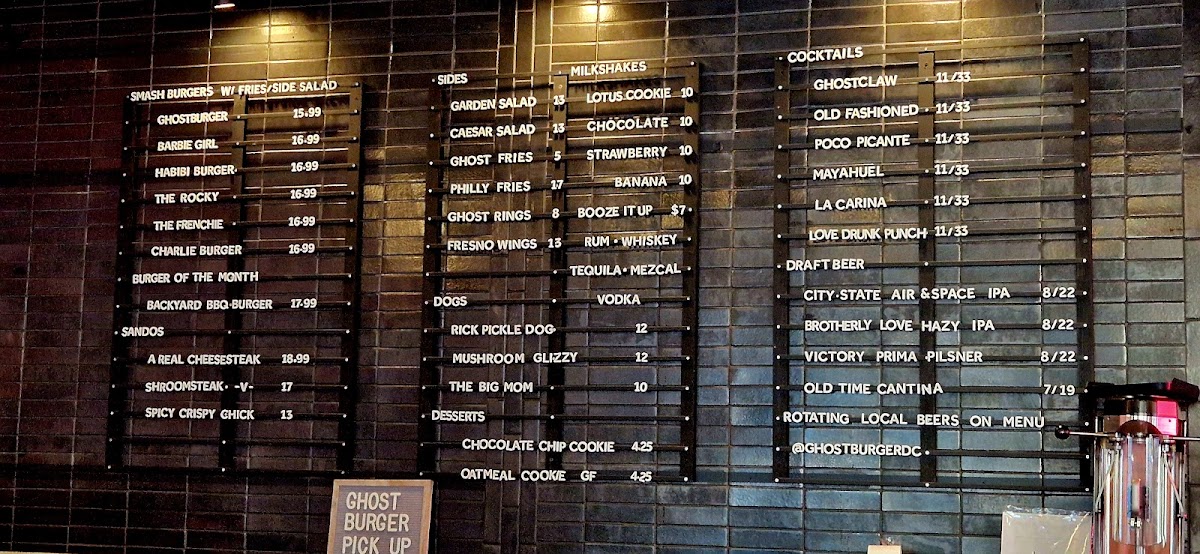 SMASH BURGERS W/ FRIES/SIDE SALAD
GHOSTBURGER 15.99
BARBIE GIRL 16.99
HABIBI BURGER 16.99
THE ROCKY 16.99
THE FRENCHIE 16.99
CHARLIE BURGER 16.99
BURGER OF THE MONTH
BACKYARD BBQ BURGER 17.99
SANDOS
A REAL CHEESESTEAK 18.99
SHROOMSTEAK -V- 17
SPICY CRISPY CHICK 13
SIDES
GARDEN SALAD 13
CAESAR SALAD 13
GHOST FRIES 5
PHILLY FRIES 17
GHOST RINGS 8
FRESNO WINGS 13
MILKSHAKES
LOTUS COOKIE 10
CHOCOLATE 10
STRAWBERRY 10
BANANA 10
BOOZE IT UP $7
RUM • WHISKEY
TEQUILA • MEZCAL
VODKA
DOGS
RICK PICKLE DOG 12
MUSHROOM GLIZZY 12
THE BIG MOM 10
DESSERTS
CHOCOLATE CHIP COOKIE 4.25
OATMEAL COOKIE GF 4.25
COCKTAILS
GHOSTCLAW 11/33
OLD FASHIONED 11/33
POCO PICANTE 11/33
MAYAHUEL 11/33
LA CARINA 11/33
LOVE DRUNK PUNCH 11/33
DRAFT BEER
CITY-STATE AIR & SPACE IPA 8/22
BROTHERLY LOVE HAZY IPA 8/22
VICTORY PRIMA PILSNER 8/22
OLD TIME CANTINA 7/19
ROTATING LOCAL BEERS ON MENU
@GHOSTBURGERDC
GHOST
BURGER
PICK UP